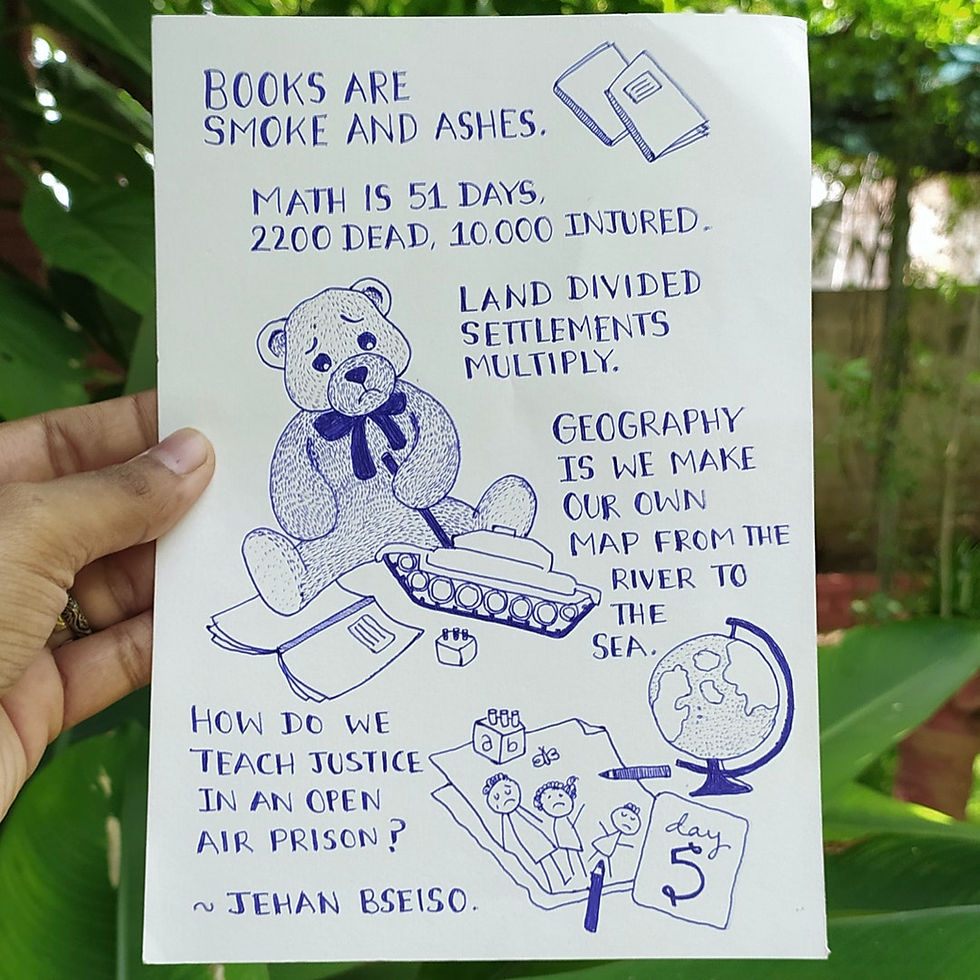 BOOKS ARE
SMOKE AND ASHES.
MATH IS 51 DAYS,
2200 DEAD, 10,000 INJURED.
LAND DIVIDED
SETTLEMENTS
MULTIPLY.
GEOGRAPHY
IS WE MAKE
OUR OWN
MAP FROM THE
RIVER TO
THE
SEA.
HOW DO WE
TEACH JUSTICE
IN AN OPEN
AIR PRISON?
~ JEHAN BSEISO.
a b
day
5